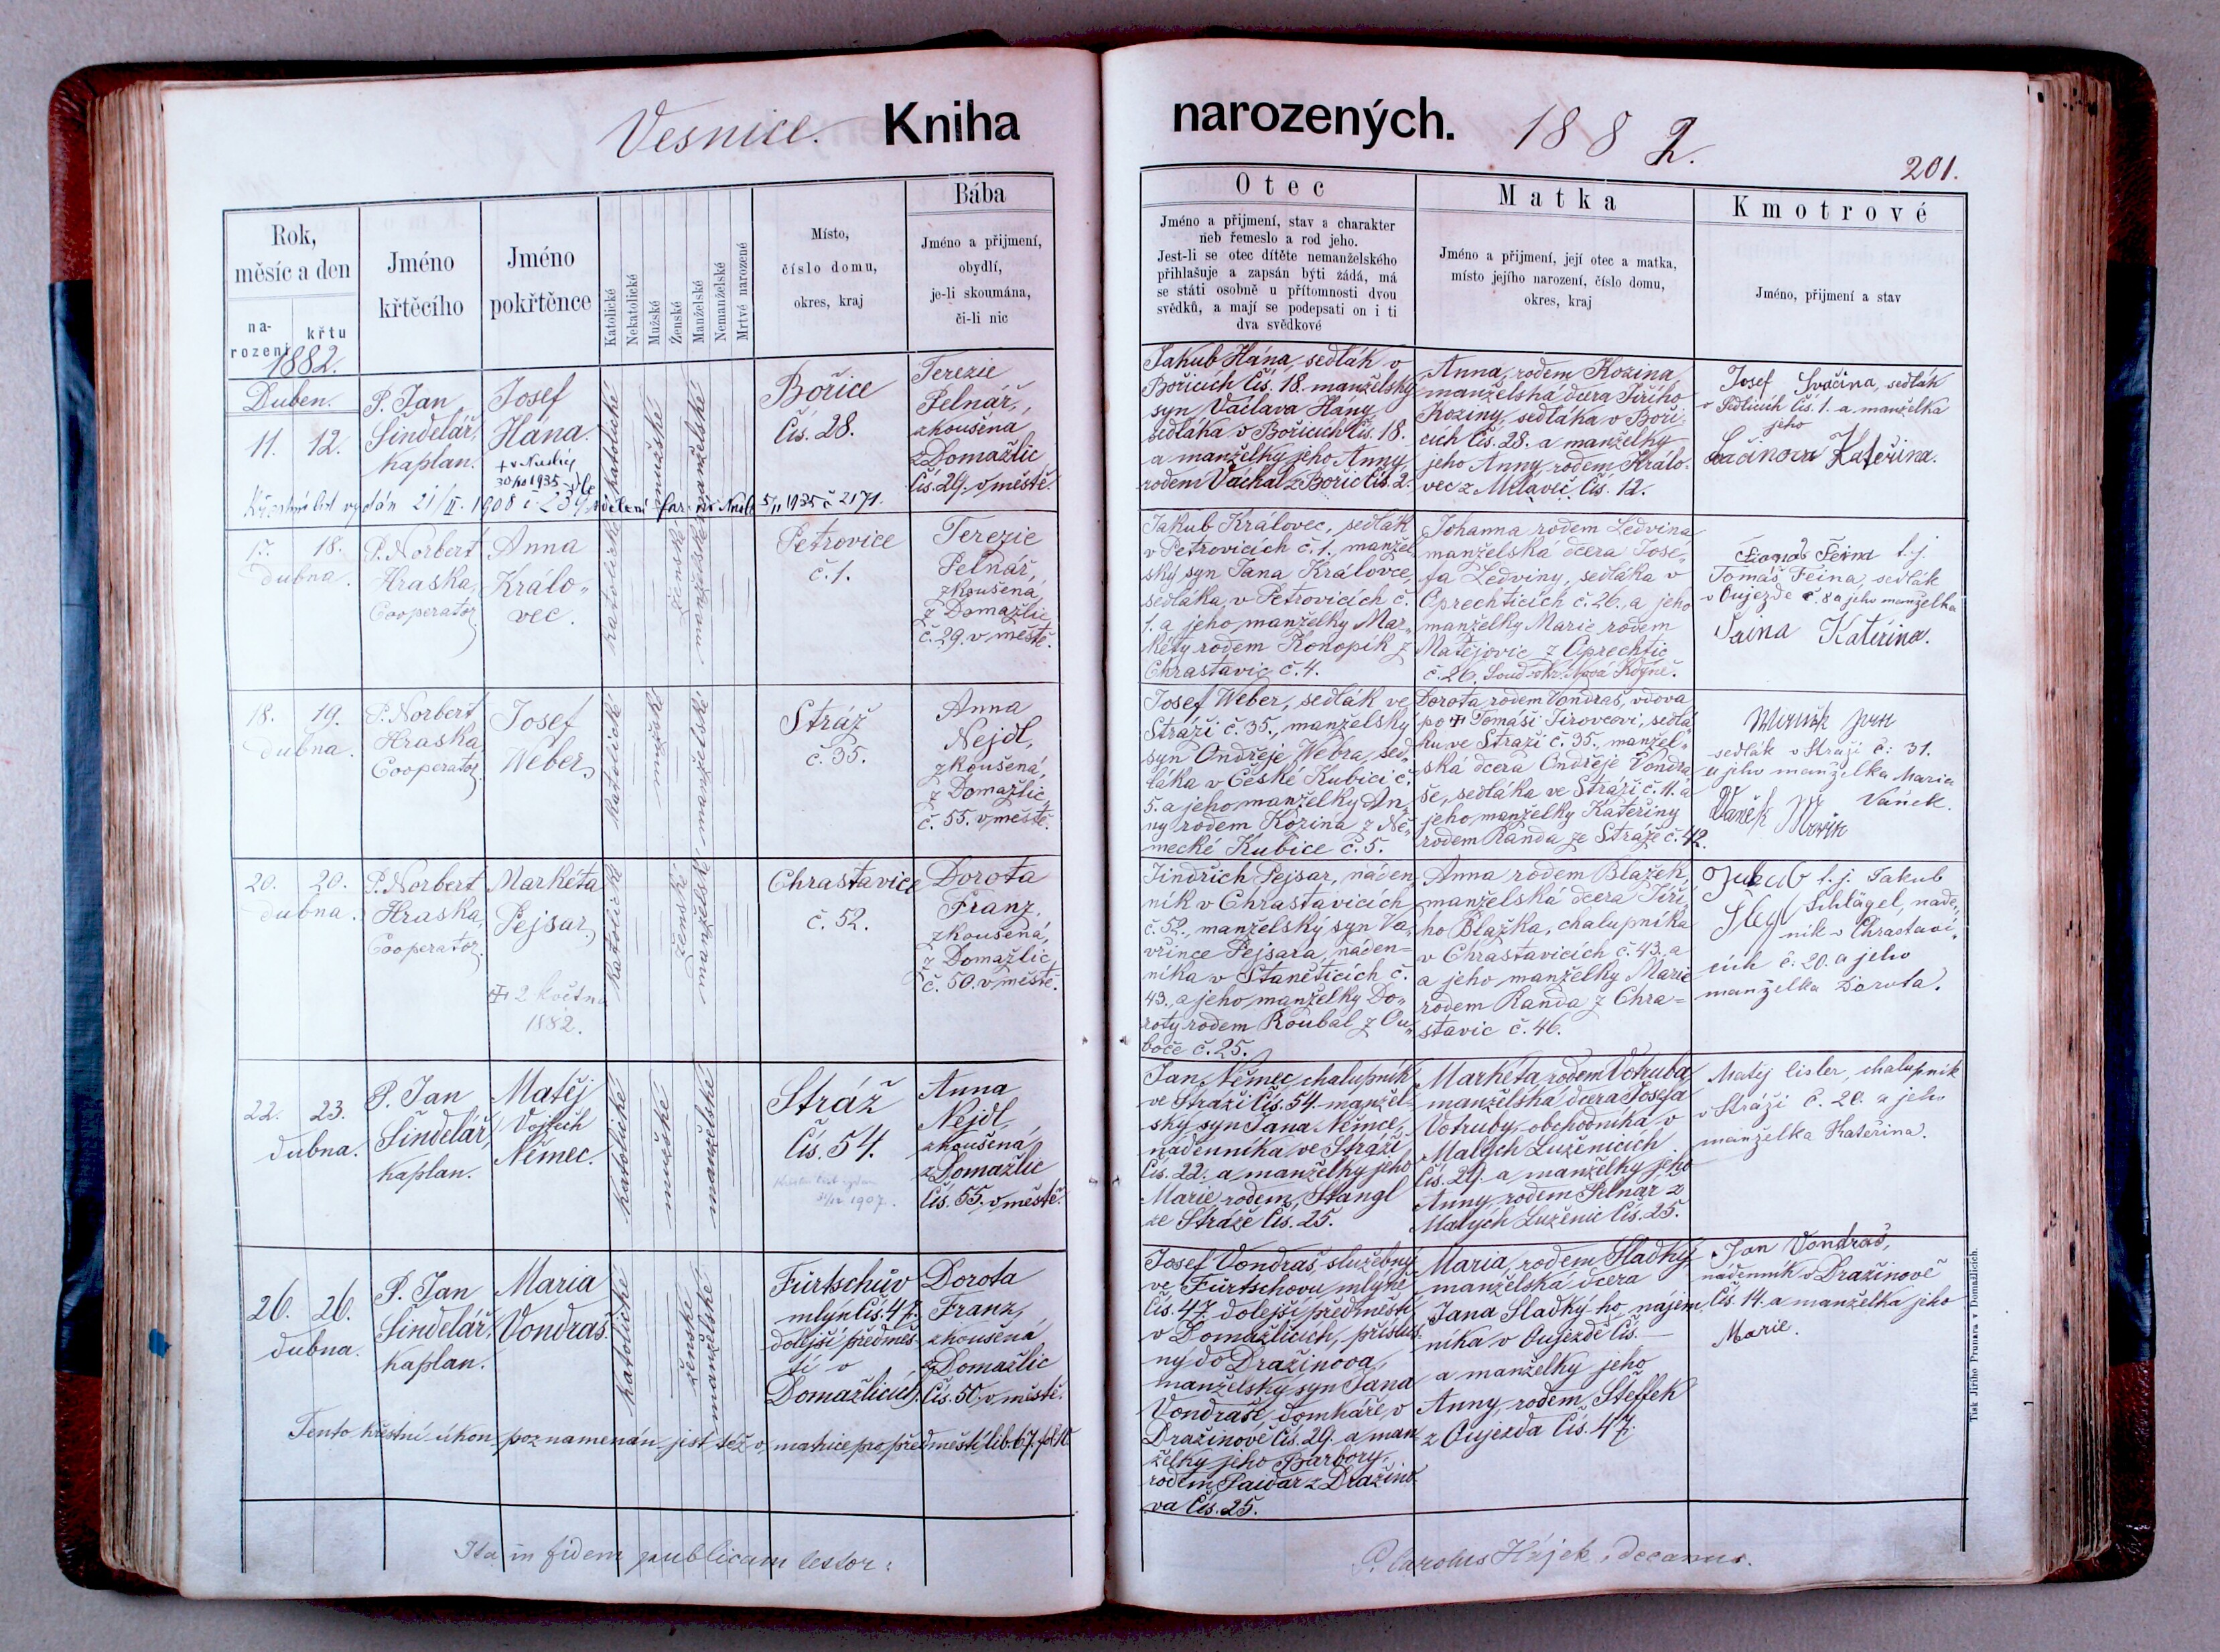 Vesnice. Kniha
Rok,
měsíc a den
na-
rození
křtu
1882.
Jméno
křtěcího
Jméno
pokřtěnce
Katolické
Nekatolické
Mužské
Ženské
Manželské
Nemanželské
Mrtvé narozené
Místo,
číslo domu,
okres, kraj
Bába
Jméno a přijmení,
obydlí,
je-li skoumána,
či-li nic
Duben.
11. 12.
P. Jan
Šindelář,
kaplan.
Josef
Hána.
30/10 1935
katolické
mužské
manželské
Bořice
Čís. 28.
Terezie
Pelnář,
zkoušená
z Domažlic
čís. 29. v městě.
Křestní list vydán 21/II. 1908 č. 234
5/11 1935 č 2171.
17. 18.
dubna.
P. Norbert
Hraska,
Cooperator.
Anna
Králo„
vec.
katolické
ženské
manželské
Petrovice
č. 1.
Terezie
Pelnář,
zkoušená,
z Domažlic,
č. 29. v městě.
18. 19.
dubna.
P. Norbert
Hraska,
Cooperator.
Josef
Weber,
katolické
mužské
manželské
Stráž
č. 35.
Anna
Nejdl,
zkoušená,
z Domažlic,
č. 55. v městě.
20. 20.
dubna.
P. Norbert
Hraska,
Cooperator.
Markéta
Pejsar,
✝ 2 května
1882.
katolické
ženské
manželské
Chrastavice
č. 52.
Dorota
Franz,
zkoušená,
z Domažlic,
č. 50. v městě.
22. 23.
dubna.
P. Jan
Šindelář,
kaplan.
Matěj
Vojtěch
Němec.
katolické
mužské
manželské
Stráž
Čís. 54.
Křestní list vydán
1907.
Anna
Nejdl,
zkoušená
z Domažlic
čís. 55. v městě.
26. 26.
dubna.
P. Jan
Šindelář,
kaplan.
Maria
Vondraš.
katolické
ženské
manželské
Fürtschův
mlýn čís. 47.
dolejší předměs-
tí v
Domažlicích.
Dorota
Franz,
zkoušená
z Domažlic
čís. 50. v městě.
Tento křestní úkon poznamenán jest též v matrice pro předměstí lib. 67. fol. 10
Ita in fidem publicam testor:
narozených. 1882.
201.
Otec
Jméno a přijmení, stav a charakter
neb řemeslo a rod jeho.
Jest-li se otec dítěte nemanželského
přihlašuje a zapsán býti žádá, má
se státi osobně u přítomnosti dvou
svědků, a mají se podepsati on i ti
dva svědkové
Matka
Jméno a přijmení, její otec a matka,
místo jejího narození, číslo domu,
okres, kraj
Kmotrové
Jméno, přijmení a stav
Jakub Hána, sedlák v
Bořicích čís. 18. manželský
syn Václava Hány,
sedláka v Bořicích čís. 18.
a manželky jeho Anny,
rodem Váchal z Bořic čís. 2.
Anna, rodem Kozina,
manželská dcera Jiřího
Koziny, sedláka v Boři-
cích čís. 28. a manželky
jeho Anny, rodem Králo-
vec z Milavč čís. 12.
Josef Svačina, sedlák
v Sedlicích čís. 1. a manželka
jeho
Kateřina.
Jakub Královec, sedlák
v Petrovicích č. 1., manžel
ský syn Jana Královce,
sedláka, v Petrovicích č.
1. a jeho manželky Mar„
kéty rodem Konopík z
Chrastavic č. 4.
Johanna rodem Ledvina
manželská dcera Jose„
fa Ledviny, sedláka v
Oprechticích č. 26., a jeho
manželky Marie rodem
Matějovic z Oprechtic
č. 26. Soud. okr. Nová Kdyně.
Feina t. j.
Tomáš Feina, sedlák
v Oujezdě č. 8 a jeho manželka
Faina Kateřina.
Josef Weber, sedlák ve
Stráži č. 35., manželský
syn Ondřeje Webra, sed„
láka v České Kubici č.
5. a jeho manželky An„
ny rodem Kozina z Ně„
mecké Kubice č. 5.
Dorota rodem Vondraš, vdova
po ✝ Tomáši Jírovcovi, sedlá
ku ve Stráži č. 35., manžel„
ská dcera Ondřeje Vondra
še, sedláka ve Stráži č. 11. a
jeho manželky Kateřiny
rodem Randa ze Stráže č. 42.
sedlák v Stráži č: 31.
a jeho manželka Maria
Vaněk.
Vaněk
Jindřich Pejsar, náden„
ník v Chrastavicích
č. 52., manželský syn Va„
vřince Pejsara, náden=
níka v Stanětících č.
43., a jeho manželky Do„
roty rodem Roubal z Ou„
boče č. 25.
Anna rodem Blažek,
manželská dcera Jiří
ho Blažka, chalupníka
v Chrastavicích č. 43. a
a jeho manželky Marie
rodem Randa z Chra=
stavic č. 46.
Jakub t. j. Jakub
Šlegl Schlägel, nade„
ník v Chrastavi„
cích č. 20. a jeho
manželka Dorota.
Jan Němec, chalupník
ve Stráži čís. 54. manžel-
ský syn Jana Němce,
nádenníka ve Stráži
čís. 22. a manželky jeho
Marie, rodem Stangl
ze Stráže čís. 25.
Markéta, rodem Votruba,
manželská dcera Josefa
Votruby, obchodníka v
Malých Luženicích
čís. 29. a manželky jeho
Anny, rodem Pelnář z
Malých Luženic čís. 25.
Matěj Cisler, chalupník
v Stráži č. 20. a jeho
manželka Kateřina.
Josef Vondraš, služebný
ve Fürtschovu mlýně
čís. 47. dolejší předměstí
v Domažlicích, přísluš-
ný do Dražinova,
manželský syn Jana
Vondraše, domkáře v
Dražinově čís. 29. a man-
želky jeho Barbory,
rodem Paidar z Dražino-
va čís. 25.
Maria, rodem Sladký,
manželská dcera
Jana Sladký-ho, nájem
níka v Oujezdě čís. —
a manželky jeho
Anny, rodem Šteffek
z Oujezda čís. 47.
Jan Vondraš,
nádenník v Dražinově
čís. 14. a manželka jeho
Marie.
P. Carolus Hájek, decanus.
Tisk Jiřího Prunara v Domažlicích.